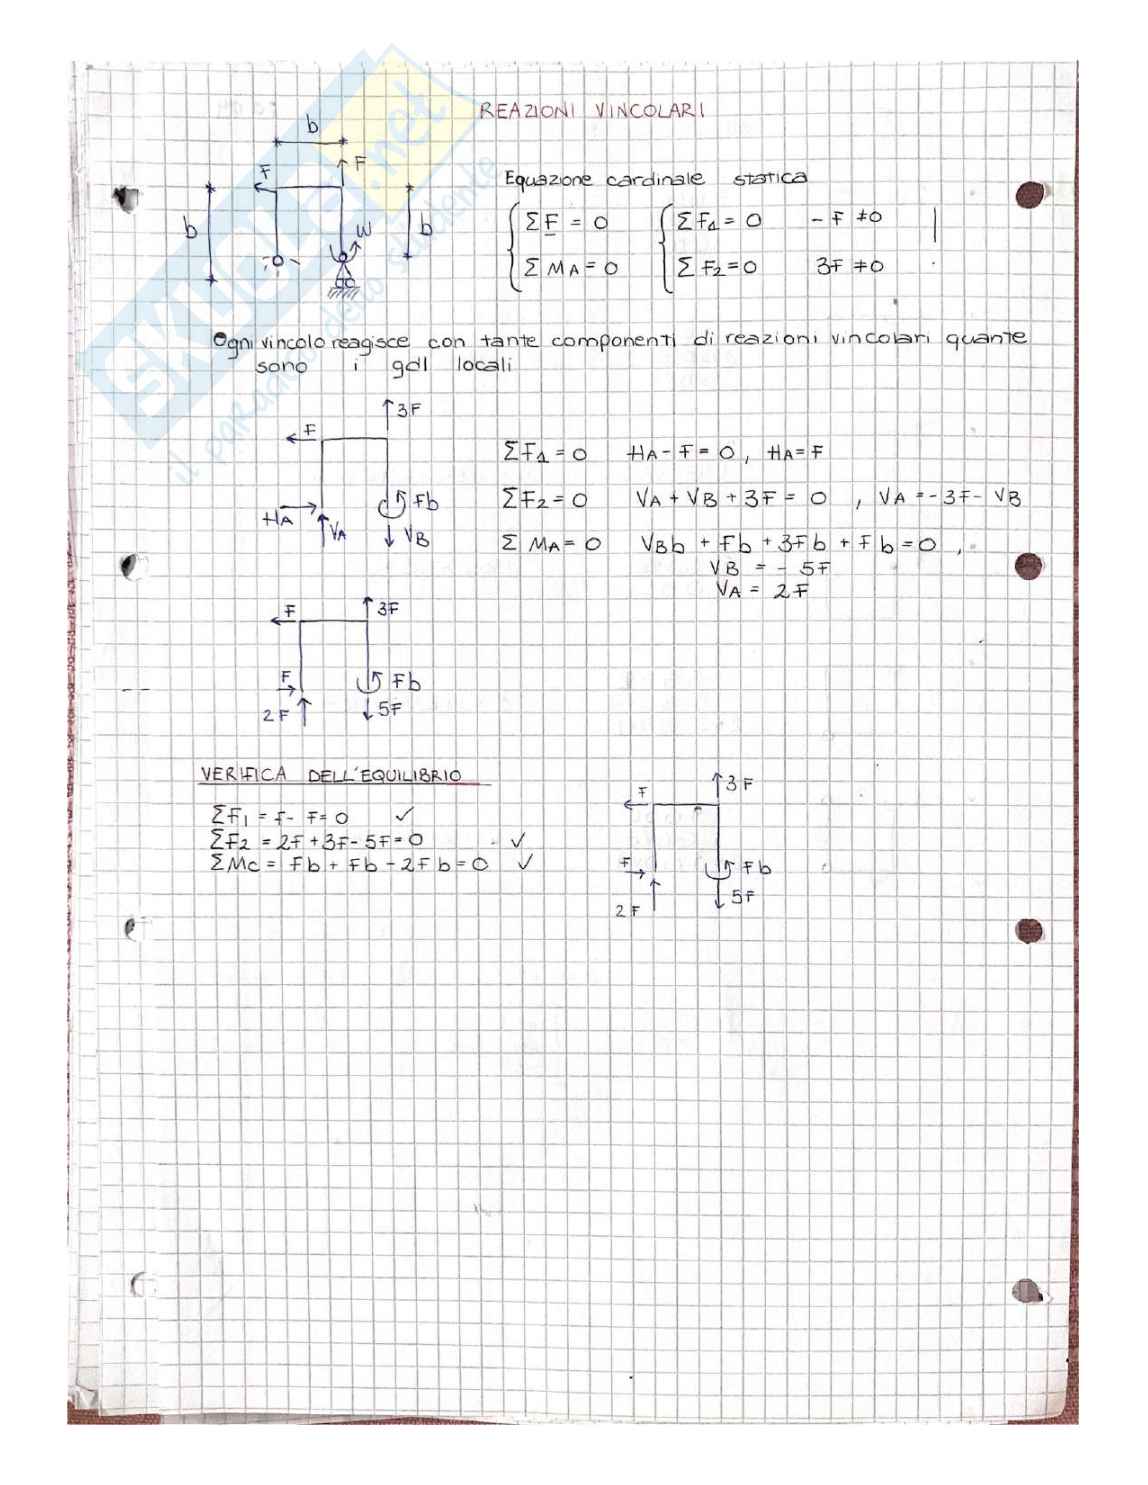 REAZIONI VINCOLARI
b
F
F
b
W
b
Equazione cardinale statica
ΣF = 0
ΣF1 = 0 - F ≠0
Σ MA = 0
Σ F2 = 0 3F ≠0
Ogni vincolo reagisce con tante componenti di reazioni vincolari quante
sono i gdl locali
3F
F
HA
VA
Fb
VB
ΣF1 = 0 HA - F = 0, HA = F
ΣF2 = 0 VA + VB + 3F = 0 , VA = -3F - VB
Σ MA = 0 VBb + Fb + 3Fb + Fb = 0 ,
VB = - 5F
VA = 2F
F
3F
F
2F
Fb
5F
VERIFICA DELL'EQUILIBRIO
ΣF1 = F - F = 0 ✓
ΣF2 = 2F + 3F - 5F = 0 ✓
ΣMc = Fb + Fb - 2Fb = 0 ✓
3F
F
F
2F
Fb
5F
SKUOLA.net
il paradiso dello studente